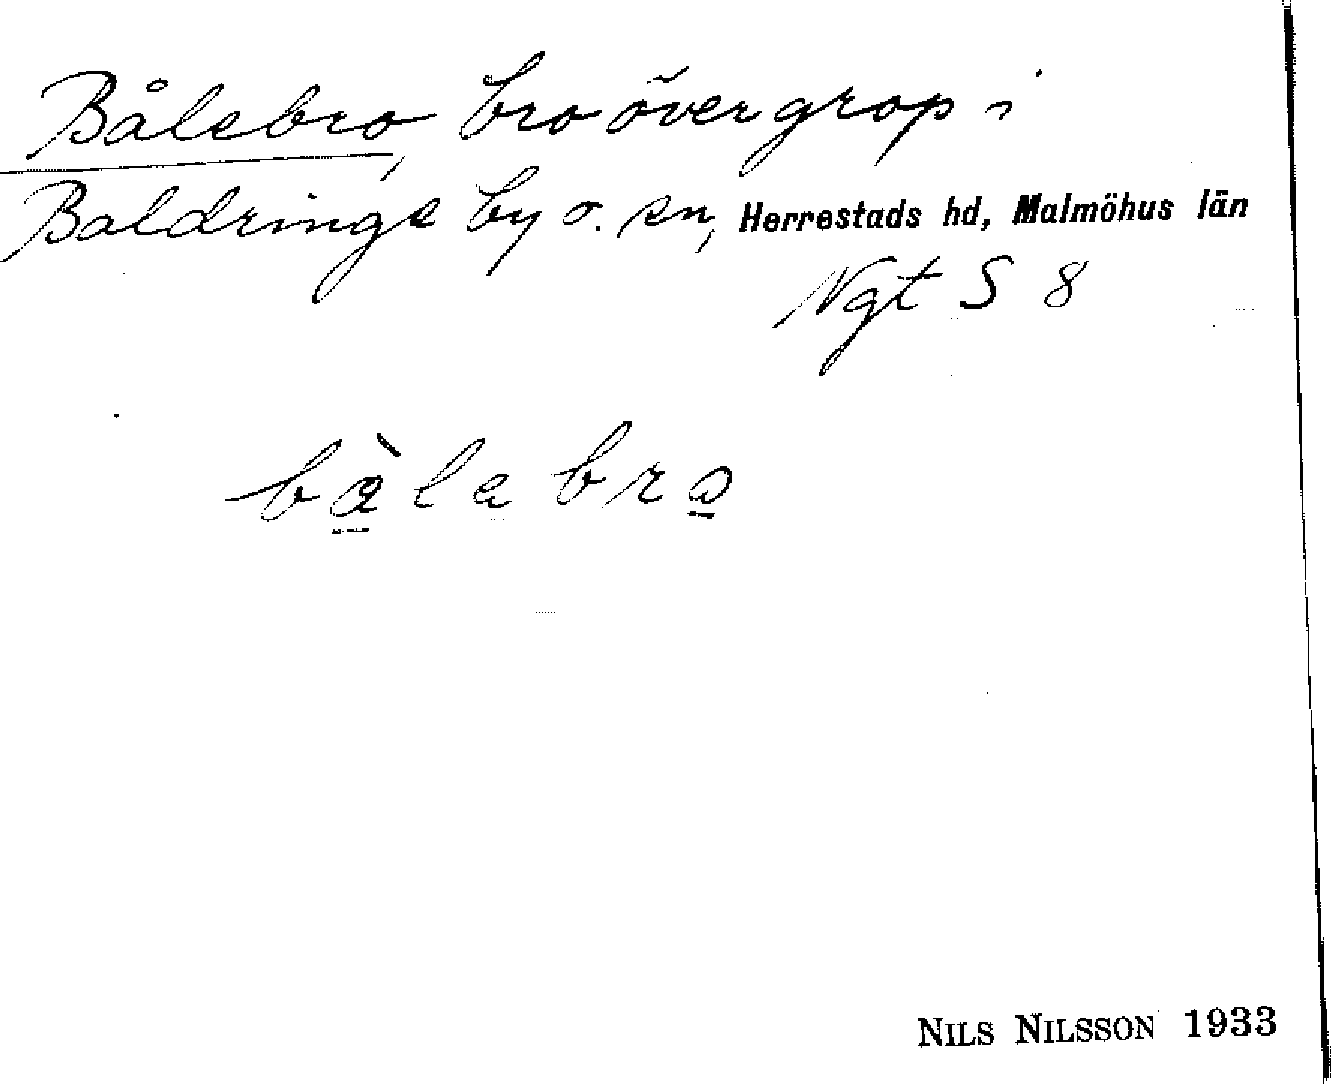 Bålebro, bro över grop i
Baldringe by o. sn, Herrestads hd, Malmöhus län
Ngt S 8
bàlabro
NILS NILSSON 1933